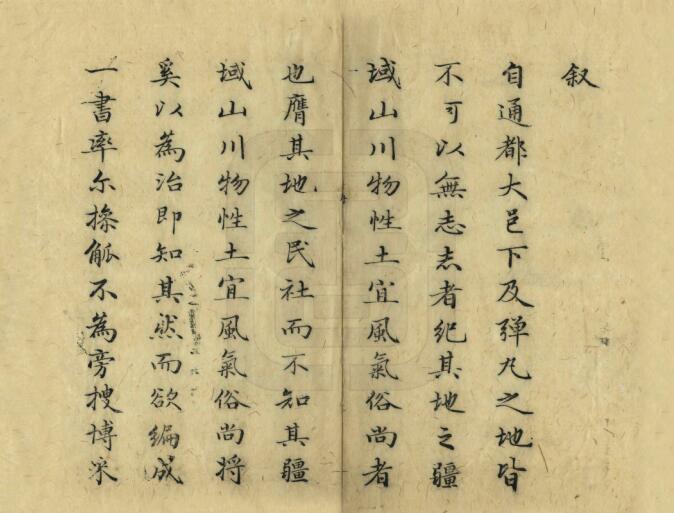 叙
自通都大邑下及弹丸之地皆
不可以無志志者纪其地之疆
域山川物性土宜風氣俗尚者
也膺其地之民社而不知其疆
域山川物性土宜風氣俗尚將
奚以為治即知其然而欲編成
一書率尔操觚不為旁搜博采